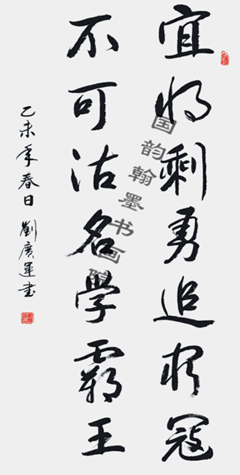 宜将剩勇追穷寇
不可沽名學霸王
乙未年春日劉廣運書
国韵翰墨书画院